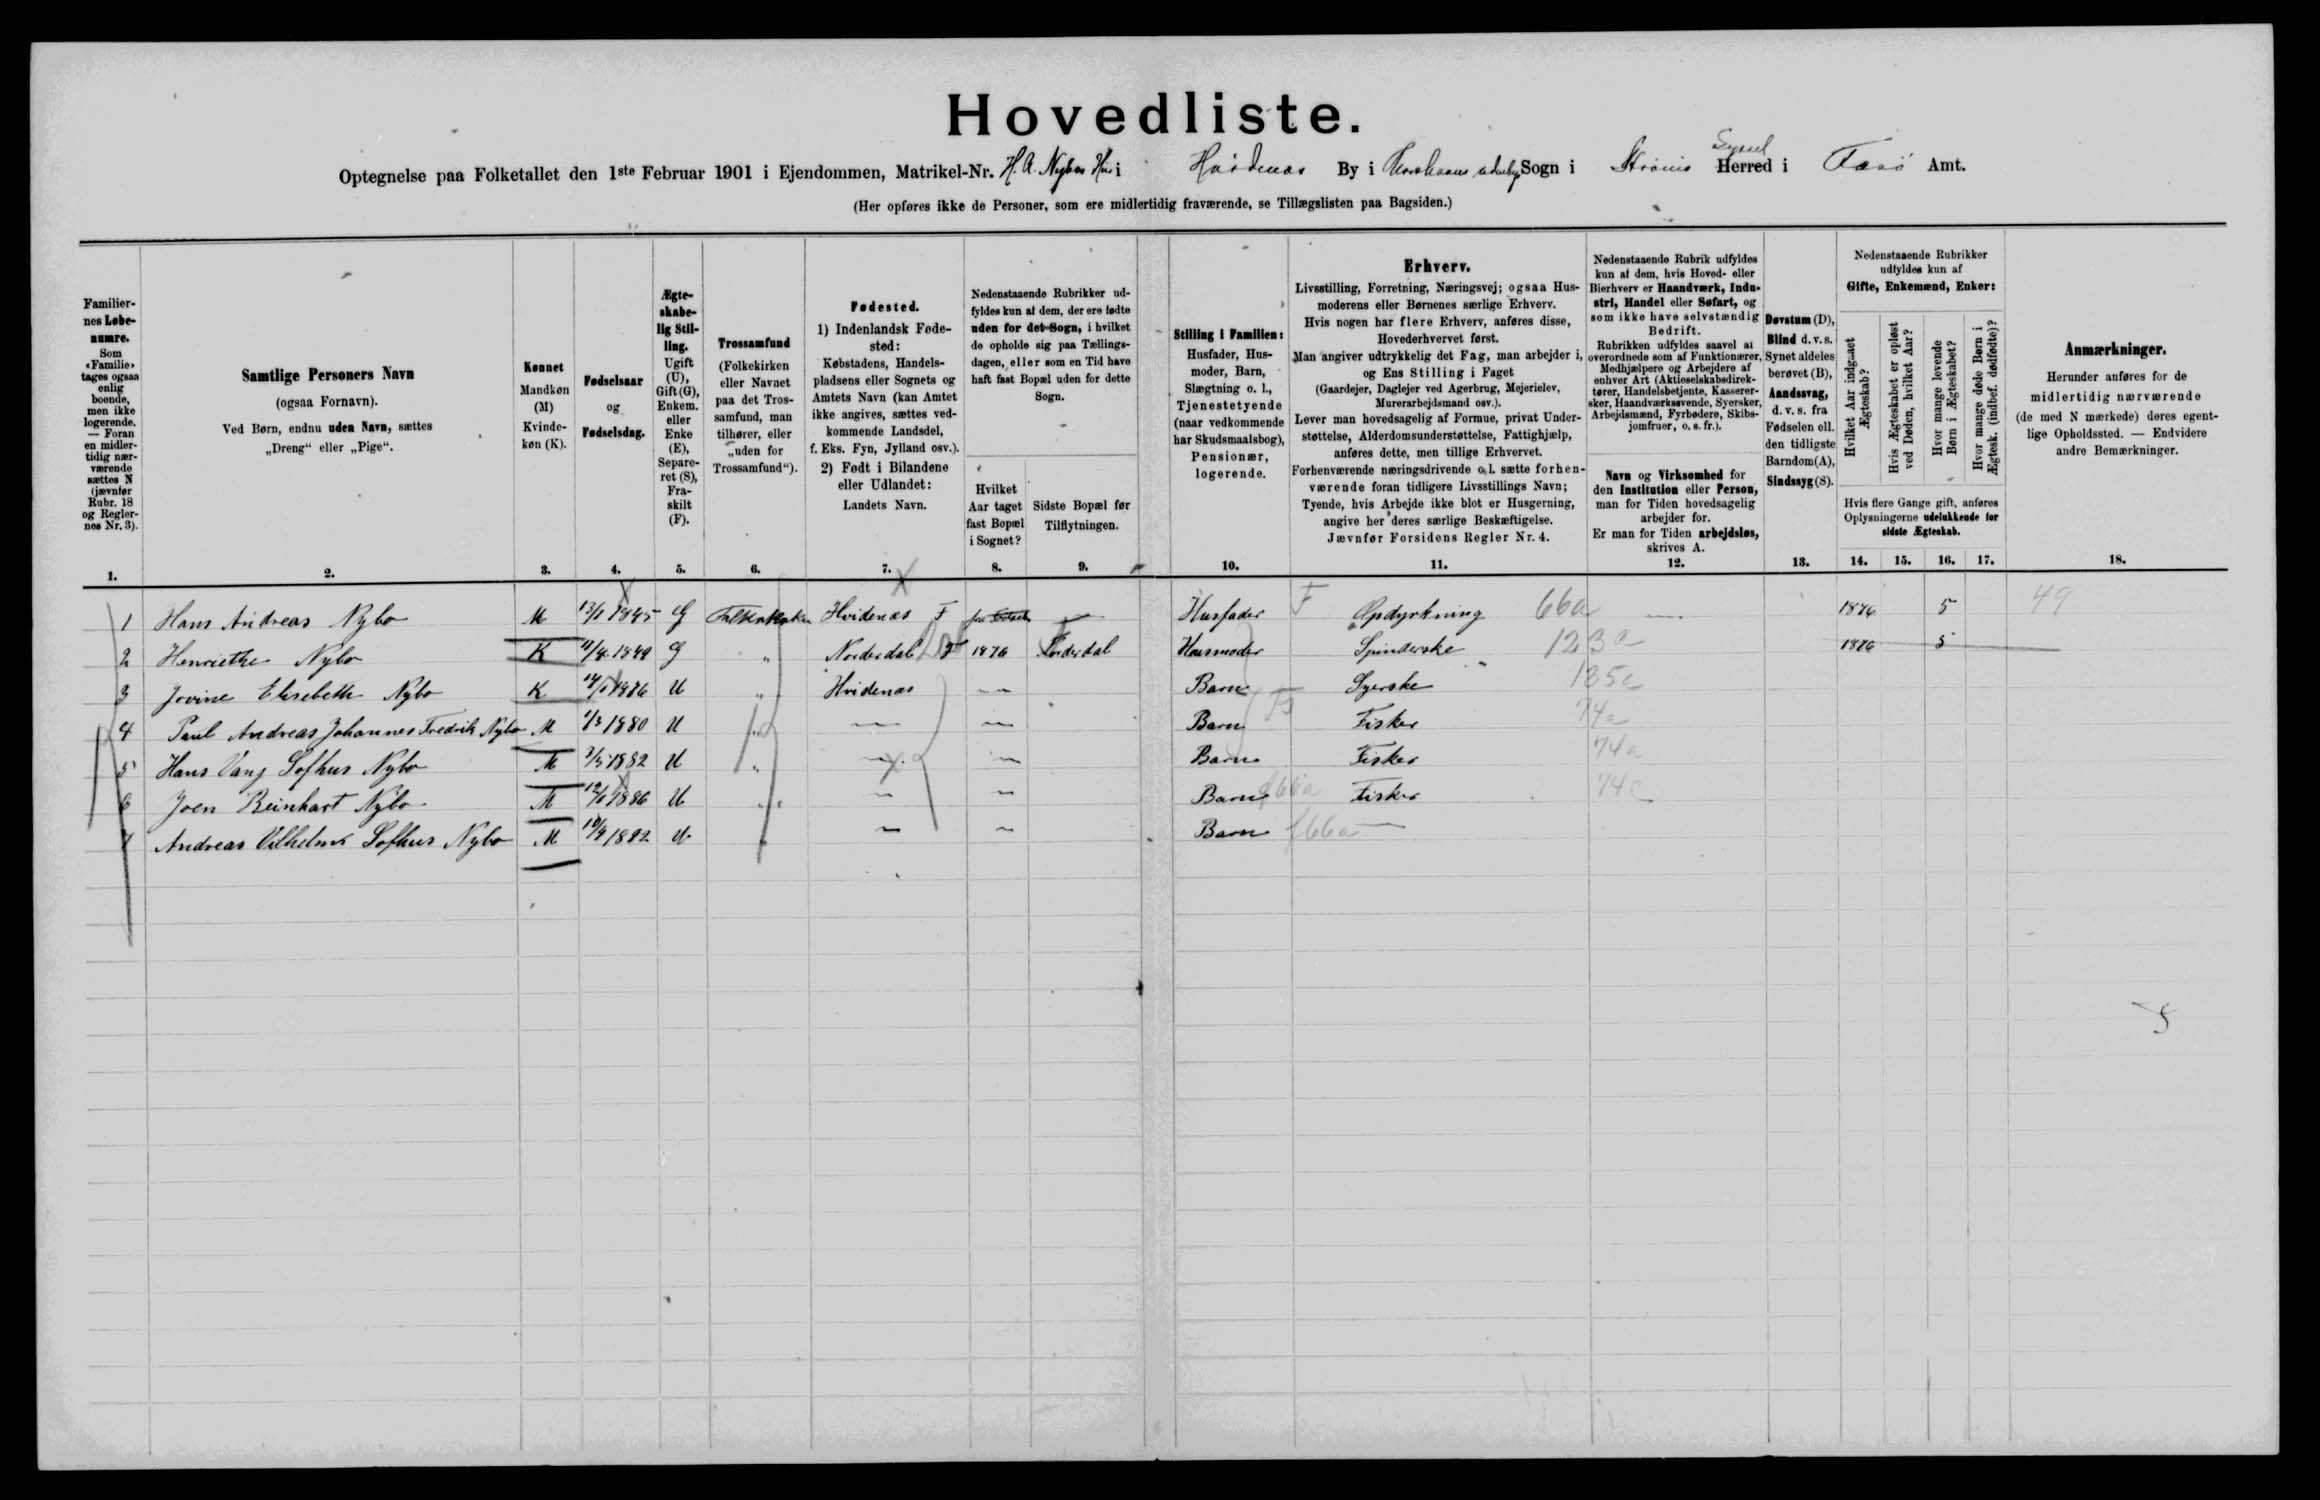 Hovedliste.
Optegnelse paa Folketallet den 1ste Februar 1901 i Ejendommen, Matrikel-Nr. H. A. Nybos Hus i Hvidenæs By i Thorshavns udenby Sogn i Strömö Syssel Herred i Færö Amt.
(Her opføres ikke de Personer, som ere midlertidig fraværende, se Tillægslisten paa Bagsiden.)
Familiernes Løbenumre.
Som «Familie» tages ogsaa enlig boende, men ikke logerende. — Foran en midlertidig nærværende sættes N (jævnfør Rubr. 18 og Reglernes Nr. 3).
Samtlige Personers Navn
(ogsaa Fornavn).
Ved Børn, endnu uden Navn, sættes
„Dreng“ eller „Pige“.
Kønnet
Mandkøn (M) Kvindekøn (K).
Fødselsaar
og
Fødselsdag.
Ægteskabelig Stilling.
Ugift (U), Gift (G), Enkem. eller Enke (E), Separeret (S), Fraskilt (F).
Trossamfund
(Folkekirken eller Navnet paa det Trossamfund, man tilhører, eller „uden for Trossamfund“).
Fødested.
1) Indenlandsk Fødested:
Købstadens, Handelspladsens eller Sognets og Amtets Navn (kan Amtet ikke angives, sættes vedkommende Landsdel, f. Eks. Fyn, Jylland osv.).
2) Født i Bilandene eller Udlandet:
Landets Navn.
Nedenstaaende Rubrikker udfyldes kun af dem, der ere fødte uden for det Sogn, i hvilket de opholde sig paa Tællingsdagen, eller som en Tid have haft fast Bopæl uden for dette Sogn.
Hvilket Aar taget fast Bopæl i Sognet?
Sidste Bopæl før Tilflytningen.
Stilling i Familien:
Husfader, Husmoder, Barn, Slægtning o. l., Tjenestetyende (naar vedkommende har Skudsmaalsbog), Pensionær, logerende.
Erhverv.
Livsstilling, Forretning, Næringsvej; ogsaa Husmoderens eller Børnenes særlige Erhverv.
Hvis nogen har flere Erhverv, anføres disse, Hovederhvervet først.
Man angiver udtrykkelig det Fag, man arbejder i, og Ens Stilling i Faget
(Gaardejer, Daglejer ved Agerbrug, Mejerielev, Murerarbejdsmand osv.).
Lever man hovedsagelig af Formue, privat Understøttelse, Alderdomsunderstøttelse, Fattighjælp, anføres dette, men tillige Erhvervet.
Forhenværende næringsdrivende o. l. sætte forhenværende foran tidligere Livsstillings Navn; Tyende, hvis Arbejde ikke blot er Husgerning, angive her deres særlige Beskæftigelse.
Jævnfør Forsidens Regler Nr. 4.
Nedenstaaende Rubrik udfyldes kun af dem, hvis Hoved- eller Bierhverv er Haandværk, Industri, Handel eller Søfart, og som ikke have selvstændig Bedrift.
Rubrikken udfyldes saavel af overordnede som af Funktionærer, Medhjælpere og Arbejdere af enhver Art (Aktieselskabsdirektører, Handelsbetjente, Kasserersker, Haandværkssvende, Syersker, Arbejdsmænd, Fyrbødere, Skibsjomfruer, o. s. fr.).
Navn og Virksomhed for den Institution eller Person, man for Tiden hovedsagelig arbejder for.
Er man for Tiden arbejdsløs, skrives A.
Døvstum (D), Blind d. v. s. Synet aldeles berøvet (B), Aandssvag, d. v. s. fra Fødselen ell. den tidligste Barndom (A), Sindssyg (S).
Nedenstaaende Rubrikker udfyldes kun af
Gifte, Enkemænd, Enker:
Hvilket Aar indgaaet Ægteskab?
Hvis Ægteskabet er opløst ved Døden, hvilket Aar?
Hvor mange levende Børn i Ægteskabet?
Hvor mange døde Børn i Ægtesk. (indbef. dødfødte)?
Hvis flere Gange gift, anføres Oplysningerne udelukkende for sidste Ægteskab.
Anmærkninger.
Herunder anføres for de midlertidig nærværende (de med N mærkede) deres egentlige Opholdssted. — Endvidere andre Bemærkninger.
1. 2. 3. 4. 5. 6. 7. 8. 9. 10. 11. 12. 13. 14. 15. 16. 17. 18.
1 Hans Andreas Nybo M 13/1 1845 G Folkekirken Hvidenæs F — Husfader F Opdyrkning 66a — 1876 5 49
2 Henriethe Nybo K 11/4 1849 G „ Norderdal F 1876 Norderdal Husmoder Spinderske 123a 1876 5
3 Jovine Elisebeth Nybo K 14/1 1876 U „ Hvidenæs — Barn Syerske 135c
4 Paul Andreas Johannes Fredrik Nybo M 1/3 1880 U „ — — Barn Fisker 74a
5 Hans Vang Sofhus Nybo M 3/5 1882 U „ — — Barn Fisker 74a
6 Joen Reinhart Nybo M 12/1 1886 U „ — — Barn 66a Fisker 74c
7 Andreas Vilhelm Sofhus Nybo M 10/9 1892 U „ — — Barn 66a —